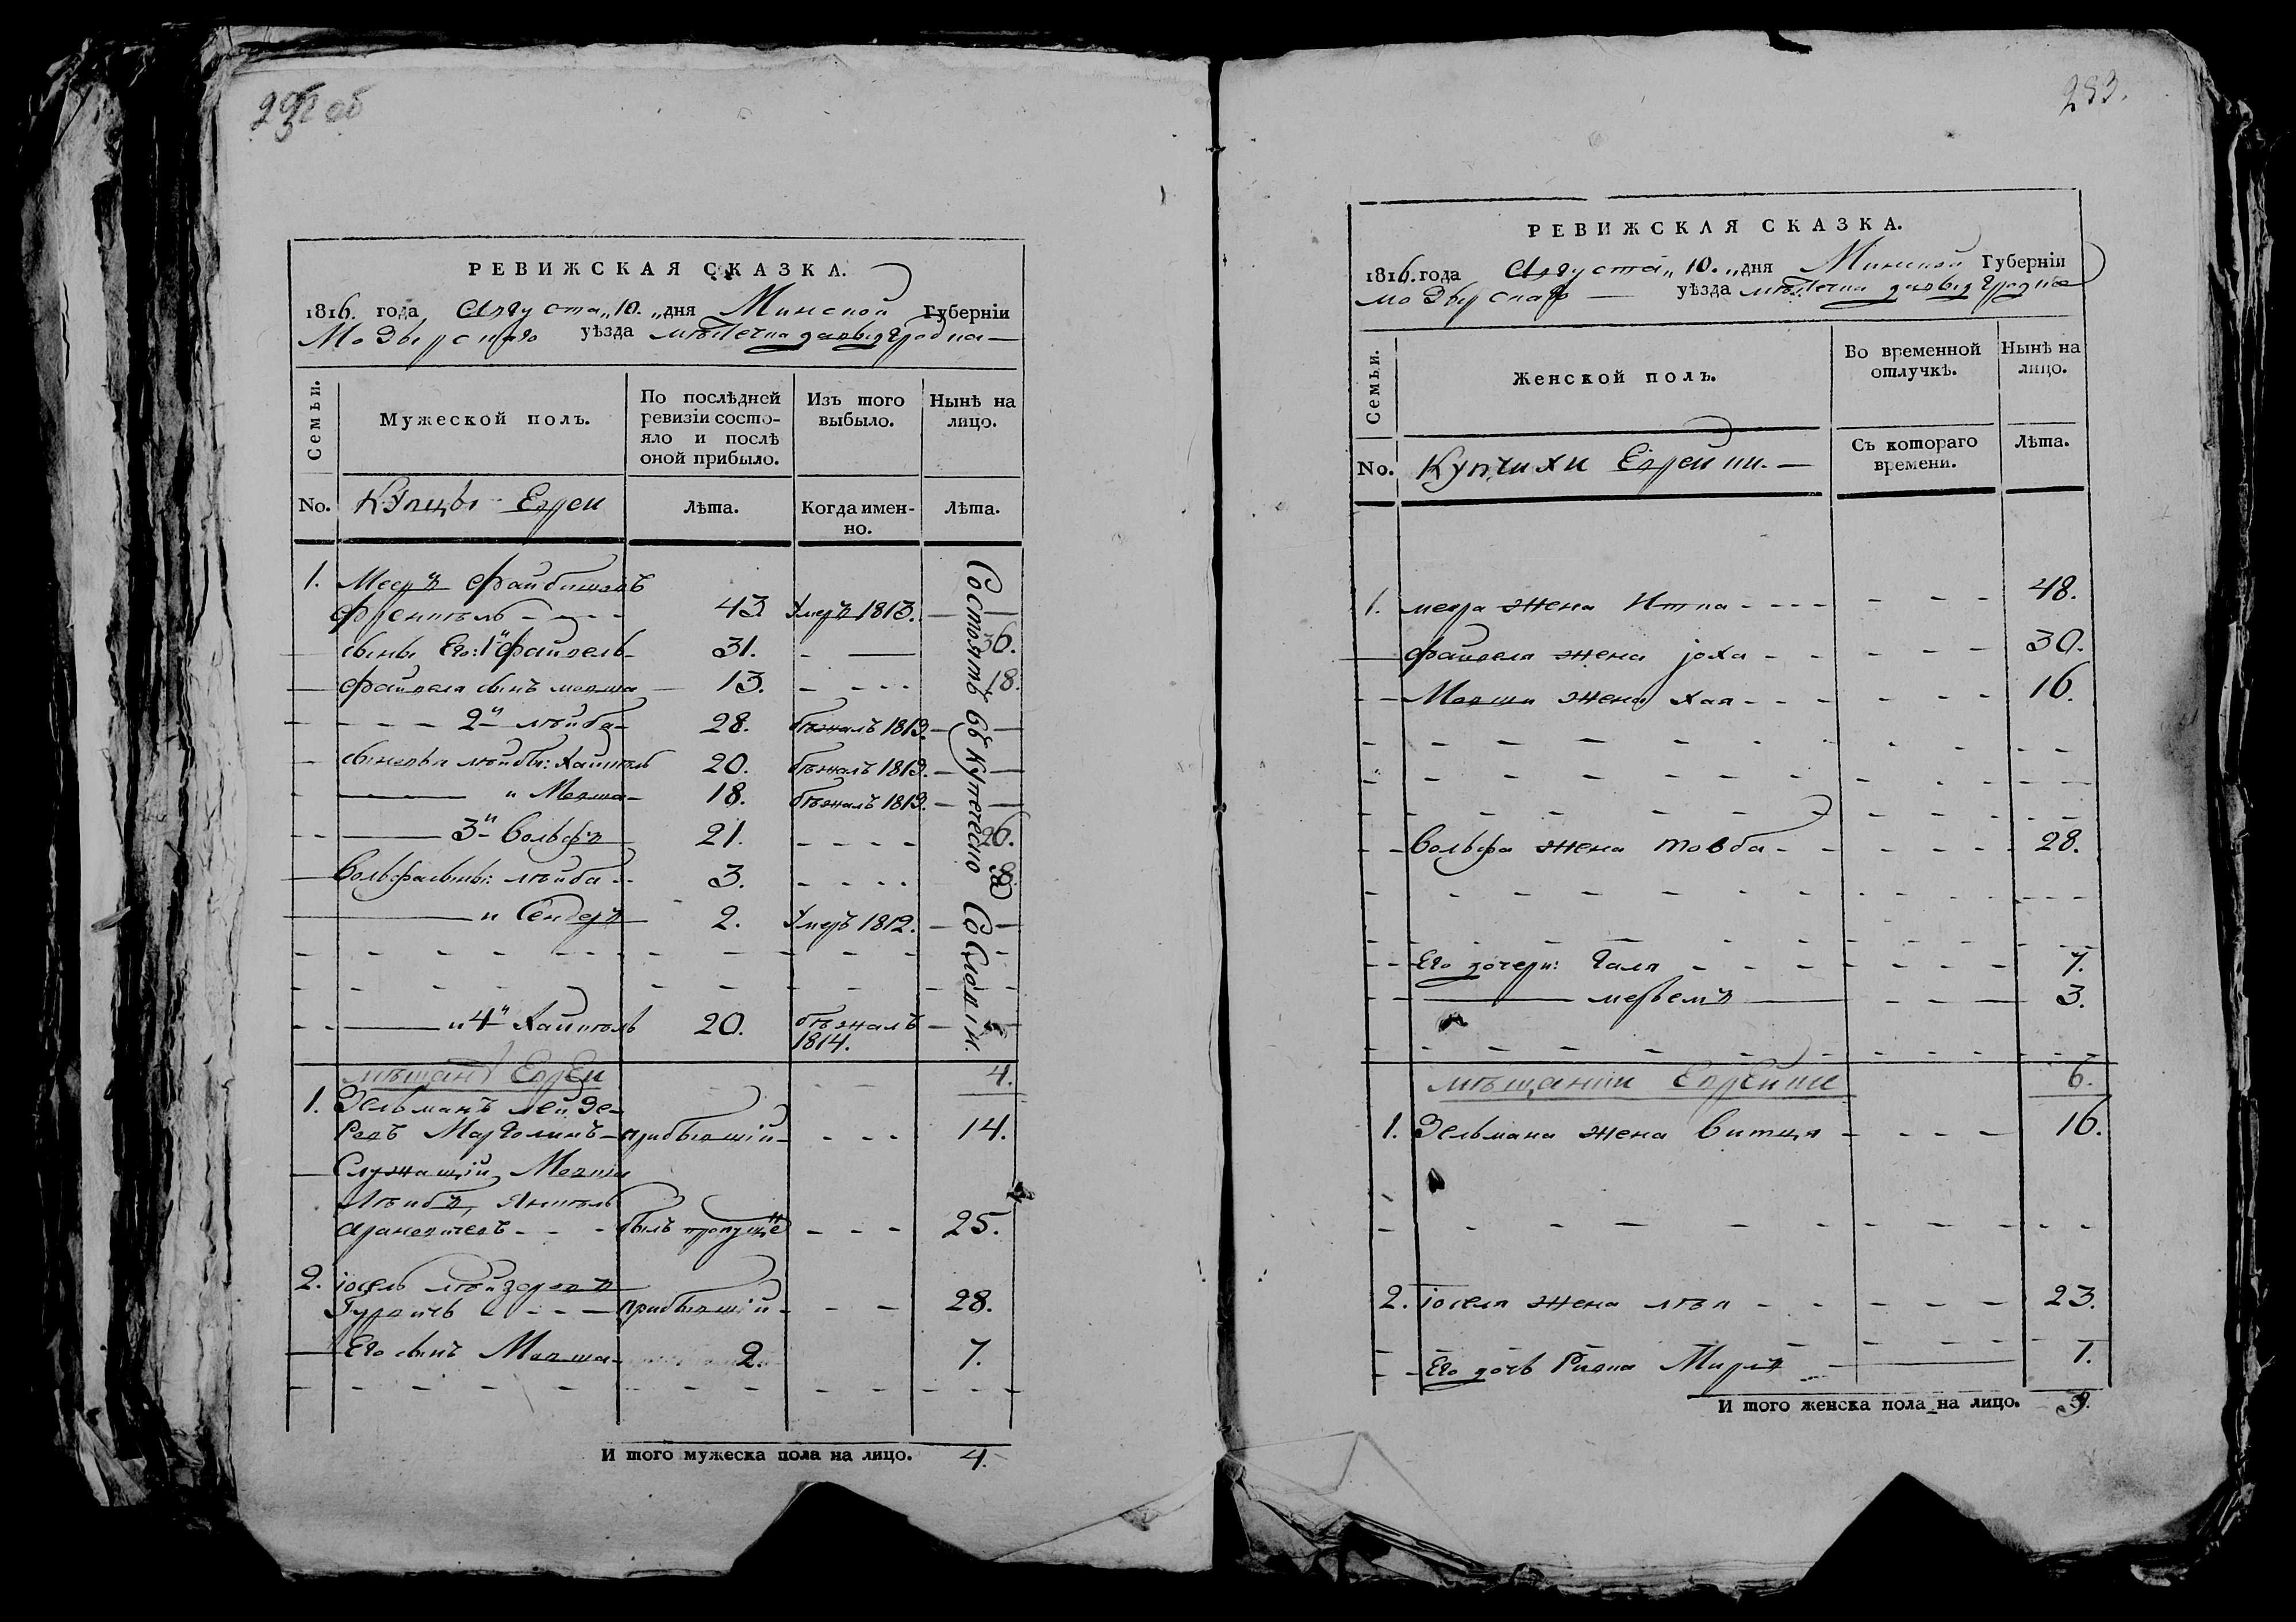 252 об
РЕВИЖСКАЯ СКАЗКА.
1816. года Августа „10. „дня Минской Губерніи
Мозырскаго уѣзда мѣстечка давыдградка
Семьи.
Мужеской полъ.
По послѣдней ревизіи состояло и послѣ оной прибыло.
Изъ того выбыло.
Нынѣ на лицо.
No. Купцы Евреи
Лѣта.
Когда именно.
Лѣта.
1. Меер фаибишовъ
френкель 43 Умеръ 1813.
сыны Его: 1й файвель 31. 36.
файвеля сынъ мовша 13. 18.
2й лейба 28. бѣжалъ 1813.
сыновья лейбы: Хаикель 20. бѣжалъ 1813.
и Мовша 18. бѣжалъ 1813.
3й Вольфъ 21. 26.
Вольфа сыны: лейба 3. 8
и Сендеръ 2. Умеръ 1812.
и 4й Хаикель 20. бѣжалъ 1814.
Состоятъ въ купеческо Сословіи.
4.
мѣщанѣ Евреи
1. Зельманъ лейзеровъ Марголинъ прибывшій 14.
Служащій Мовша
Лѣибъ, Янкель
Ароновичевъ былъ 25.
2. іосель лейзеровъ
Гуревичъ прибывшій 28.
Его сынъ Мовша 2. 7.
И того мужеска пола на лицо. 4.
253.
РЕВИЖСКАЯ СКАЗКА.
1816. года Августа „10. „дня Минской Губерніи
Мозырскаго уѣзда мѣстечка давыдградка
Семьи.
Женской полъ.
Во временной отлучкѣ.
Нынѣ на лицо.
No. Купчихи Еврейки.
Съ котораго времени.
Лѣта.
1. меера жена Итка 48.
файвеля жена іоха 30.
Мовши жена хая 16.
Вольфа жена товба 28.
Его дочери: Галя 7.
мерьемъ 3.
6.
мѣщанки Еврейки
1. Зельмана жена Витця 16.
2. іоселя жена лѣя 23.
Его дочь Ривка Миръ 1.
И того женска пола на лицо. 3.